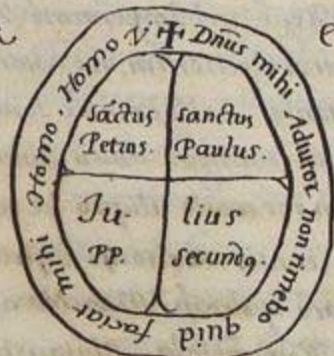 ✝ Dñus mihi Adiutor non timebo quid faciat mihi Homo. Homo V
sāctus sanctus
Petrus. Paulus.
Iu- lius
PP. secundꝯ